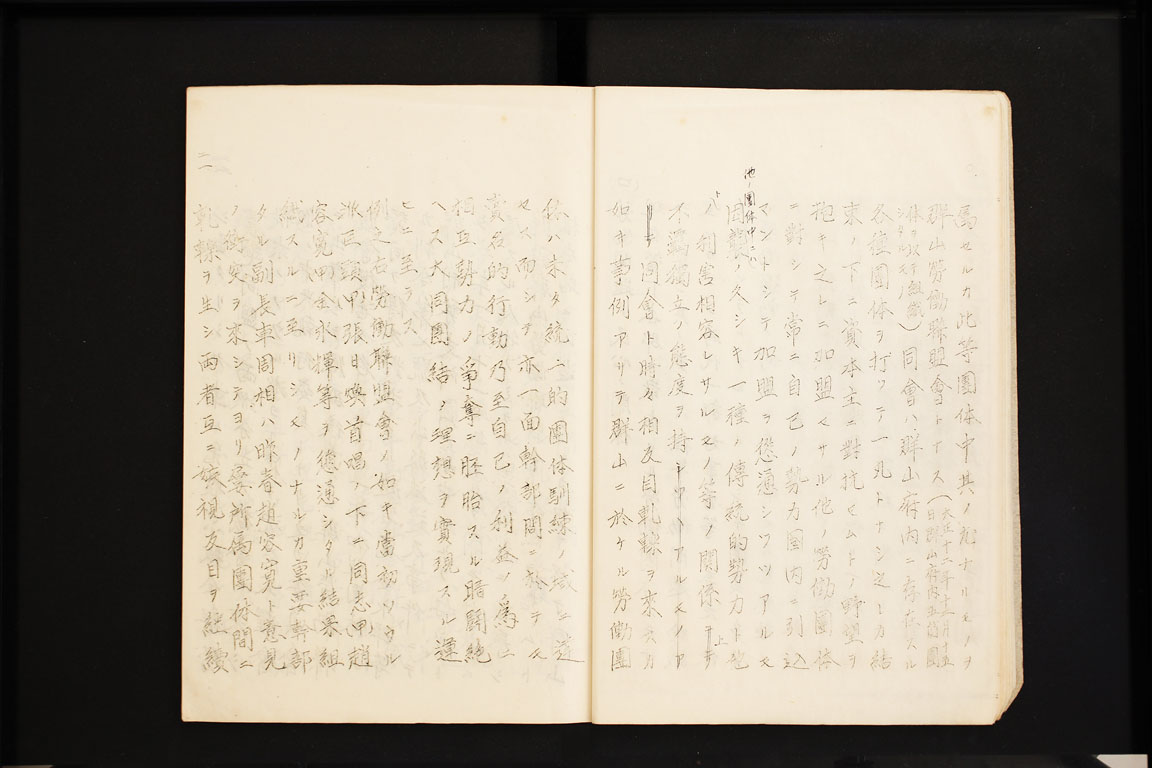 為セルカ此等團体中其ノ尤ナルモノヲ
群山勞働聯盟會トナス(大正十二年十二月
日群山府內五箇團
体ヲ以テ組織
シタルモノ)同會ハ群山府內ニ存在スル
各種團体ヲ打ツテ一丸トナシ之レカ結
束ノ下ニ資本主ニ對抗セムトノ野望ヲ
抱キ之レニ加盟セサル他ノ勞働團体
ニ對シテ常ニ自己ノ勢力圈內ニ引込
マントシテ加盟ヲ慫慂シツツアルモ
他ノ團体中ニハ
因襲ノ久シキ一種ノ傳統的勢力ト他
ト利害相容レサルモノ等ノ関係上
不覊獨立ノ態度ヲ持
テ同會ト時々相反目軋轢ヲ來スカ
如キ事例アリテ群山ニ於ケル勞働團
体ハ未タ統一的團体訓練ノ域ニ達
セス而シテ亦一面幹部間ニ於テモ
賣名的行動乃至自己ノ利益ノ為ニ
相互勢力ノ爭奪ニ胚胎スル暗鬪絶
ヘス大同團結ノ理想ヲ實現スル運
ヒニ至ラス
例之右勞働聯盟會ノ如キ當初ソウル
派巨頭甲張日煥首唱ノ下ニ同志甲趙
容寬甲金永輝等ヲ慫慂シタル結果組
織スルニ至リシモノナルカ重要幹部
タル副長車周相ハ昨春趙容寬ト意見
ノ衝突ヲ來シテヨリ愛所屬團体間ニ
軋轢ヲ生シ両者互ニ嫉視反目ヲ継續
二